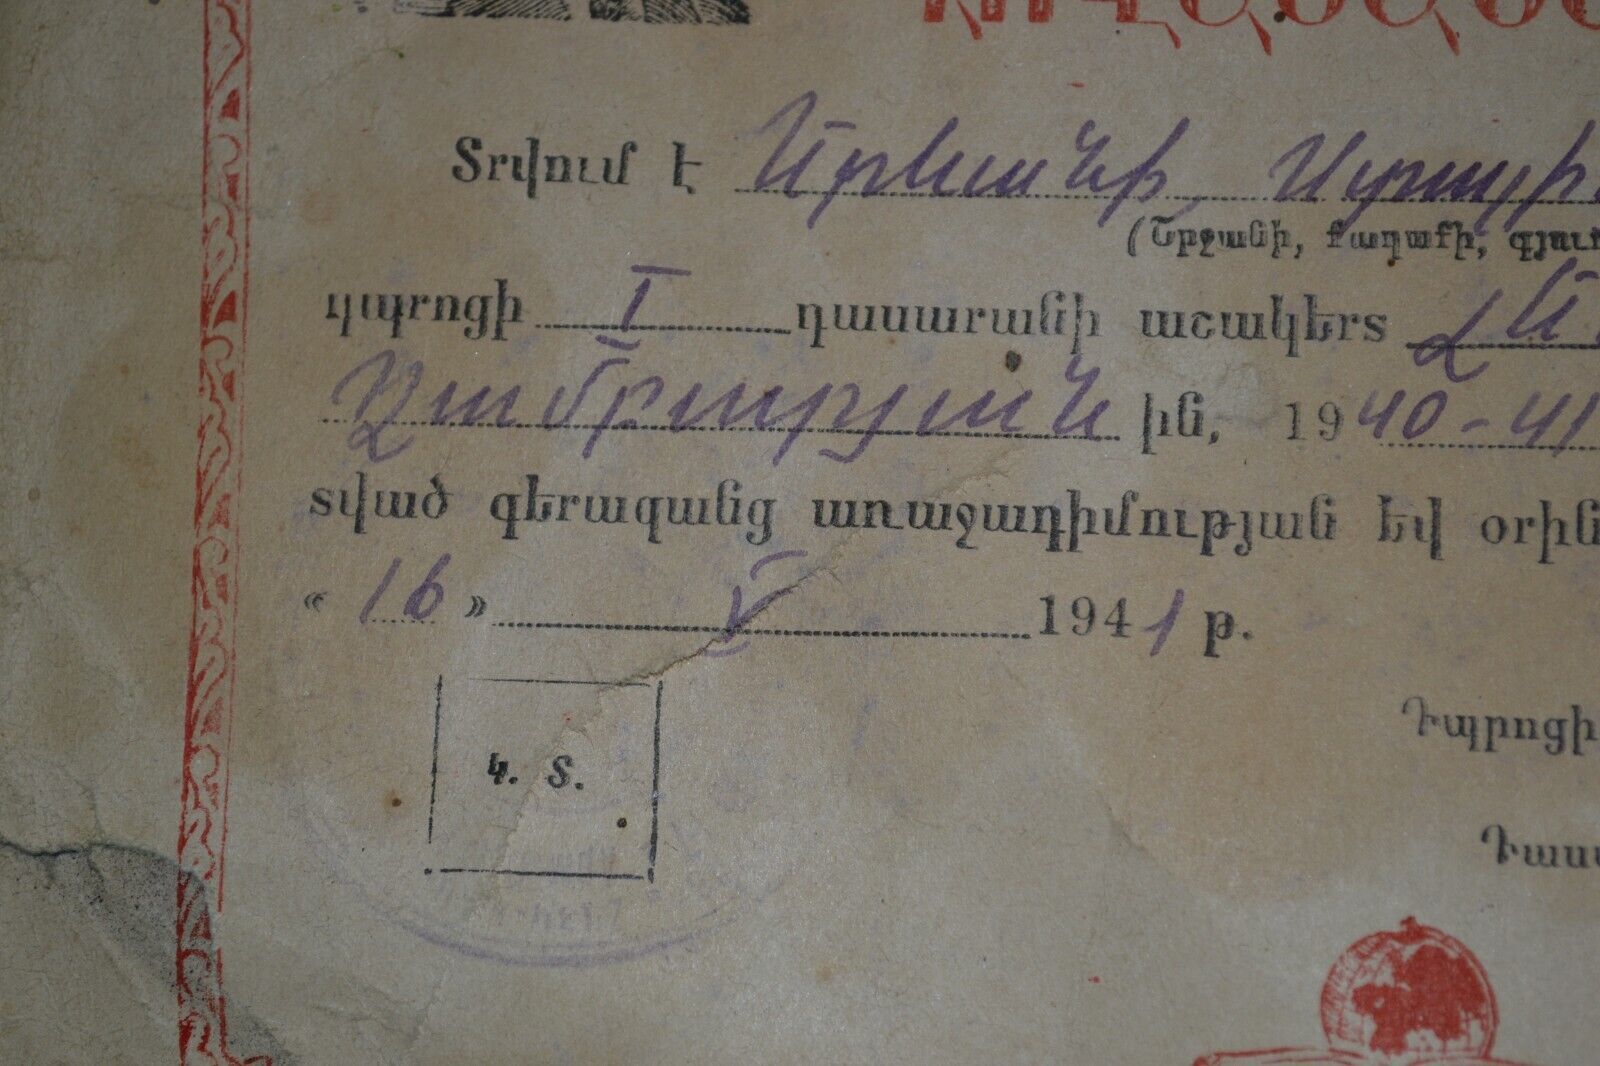 Տրվում է Երևանի, Ստալին
(Շրջանի, քաղաքի, գյուղ
դպրոցի I դասարանի աշակերտ
Ղամբարյան ին, 1940-41
տված գերազանց առաջադիմության եվ օրին
« 16 » V 1941 թ.
Կ. Տ.
Դպրոցի
Դաս